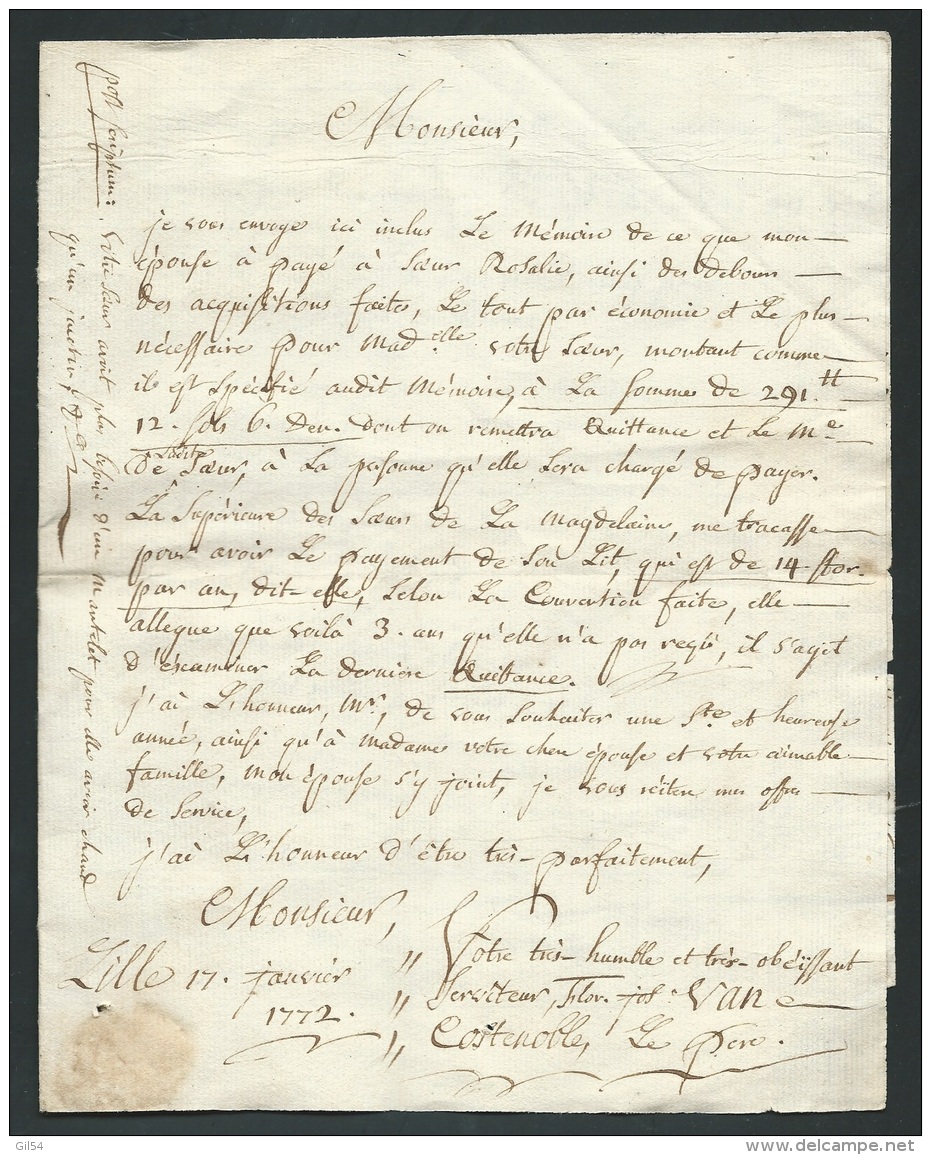 Monsieur,
je vous envoye ici inclus Le Mémoire de ce que mon
épouse à payé à Sœur Rosalie, ainsi des debours
des acquisitions faites, Le tout par économie et Le plus
nécessaire pour Mad.elle votre Sœur, montant comme
il est spécifié audit Mémoire, à La somme de 291.tt
12. sols 6. Den. dont on remettra Quittance et Le M.e
de ladite Sœur, à La personne qu'elle sera chargé de payer.
La Supérieure des Sœurs de La Magdelaine, me tracasse
pour avoir Le payement de Son Lit, qui est de 14 flor.
par an, dit-elle, selon La Convention faite, elle
allegue que voilà 3. ans qu'elle n'a pas reçû, il s'agit
d'éscaminer La derniere Quittance.
j'ai L'honneur, Mr., de vous souhaiter une Ste et heureuse
année, ainsi qu'à Madame votre chere épouse et votre aimable
famille, mon épouse s'y joint, je vous réitere mes offres
de Service,
j'ai L'honneur d'être très-parfaitement,
Monsieur,
Votre très-humble et très-obéissant
Serviteur, Flor. jos. VAN
Costenoble, Le pere.
Lille 17. janvier
1772.
post scriptum: votre Sœur avoit plus besoin d'un Mantelet pour elle avoir chaud
qu'un
Gil54
www.delcampe.net